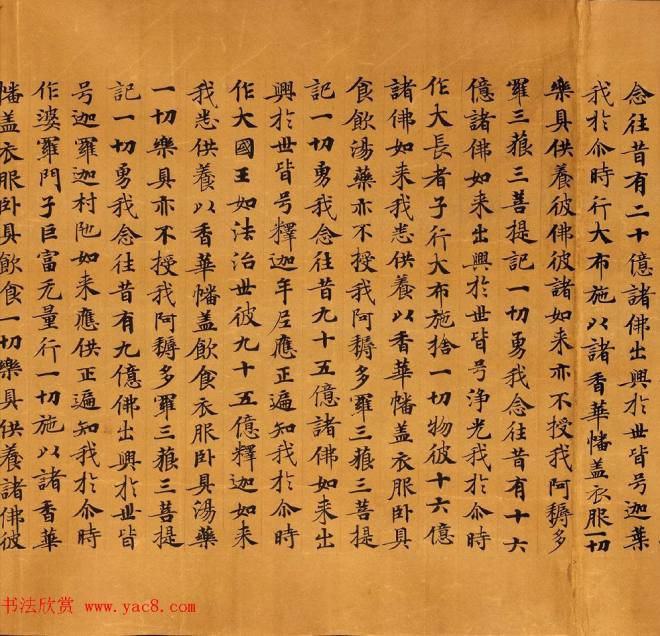 念往昔有二十億諸佛出興於世皆号迦葉
我於尒時行大布施以諸香華幡盖衣服一切
樂具供養彼佛彼諸如来亦不授我阿耨多
羅三藐三菩提記一切勇我念往昔有十六
億諸佛如来出興於世皆号淨光我於尒時
作大長者子行大布施捨一切物彼十六億
諸佛如来我悉供養以香華幡盖衣服卧具
食飲湯藥亦不授我阿耨多羅三藐三菩提
記一切勇我念往昔九十五億諸佛如来出
興於世皆号釋迦牟尼應正遍知我於尒時
作大國王如法治世彼九十五億釋迦如来
我悉供養以香華幡盖飲食衣服卧具湯藥
一切樂具亦不授我阿耨多羅三藐三菩提
記一切勇我念往昔有九億佛出興於世皆
号迦羅迦村陁如来應供正遍知我於尒時
作婆羅門子巨富无量行一切施以諸香華
幡盖衣服卧具飲食一切樂具供養諸佛彼
书法欣赏 www.yac8.com